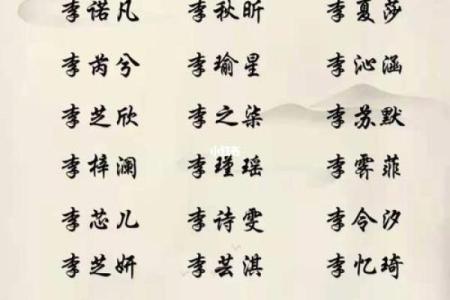 李诺凡 李秋昕 李夏莎
李芮兮 李瑜星 李沁涵
李芝欣 李之柒 李苏默
李梓澜 李瑾瑶 李霁菲
李芯儿 李诗雯 李令汐
李芝妍 李芸淇 李忆琦
小红书